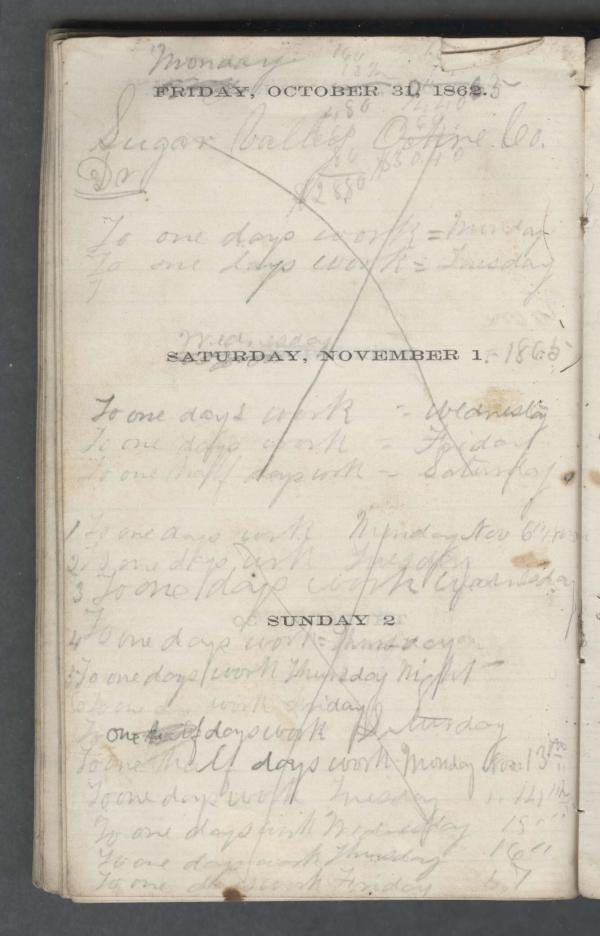 Monday
FRIDAY, OCTOBER 31, 1862.
Sugar Valley Co.
Dr
$2880 $3040
To one days work = Munday
To one days work = Tuesday
Wednesday
SATURDAY, NOVEMBER 1. 1865
To one days work = Wednesday
To one days work = Friday
To one half days work = Saturday
1 To one days work Munday Nov 6th
2 To one days work Tuesday
3 To one days work Wednesday
SUNDAY 2
4 To one days work = Thursday
5 To one days work Thursday Night
To one days work Friday
To one days work Saturday
To one half days work Monday Nov 13
To one days work Tuesday 14
To one days work Wednesday 15 "
To one days work Thursday 16 "
To one days work Friday 17